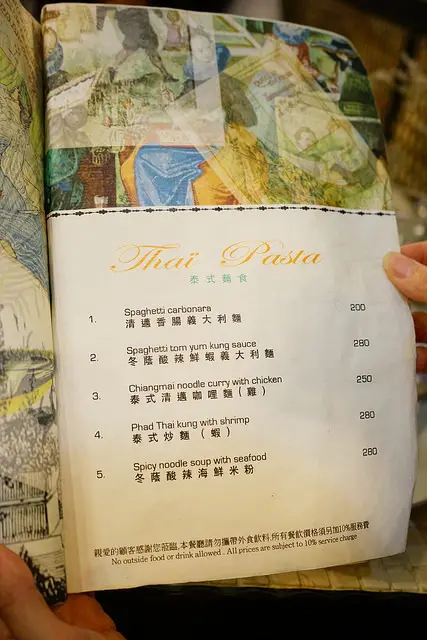 Thaï Pasta
泰式麵食
1. Spaghetti carbonara 200
清邁香腸義大利麵
2. Spaghetti tom yum kung sauce 280
冬蔭酸辣鮮蝦義大利麵
3. Chiangmai noodle curry with chicken 250
泰式清邁咖哩麵(雞)
4. Phad Thai kung with shrimp 280
泰式炒麵 (蝦)
5. Spicy noodle soup with seafood 280
冬蔭酸辣海鮮米粉
親愛的顧客感謝您蒞臨,本餐廳請勿攜帶外食飲料,所有餐飲價格須另加10%服務費
No outside food or drink allowed . All prices are subject to 10% service charge